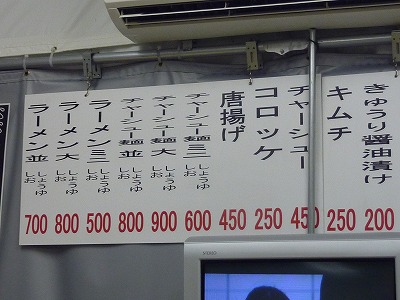 ラーメン並 しょうゆ しお 700
ラーメン大 しょうゆ しお 800
ラーメン三 しょうゆ しお 500
チャーシュー麺並 しょうゆ しお 800
チャーシュー麺大 しょうゆ しお 900
チャーシュー麺三 しょうゆ しお 600
唐揚げ 450
コロッケ 250
チャーシュー 450
キムチ 250
きゅうり醤油漬け 200